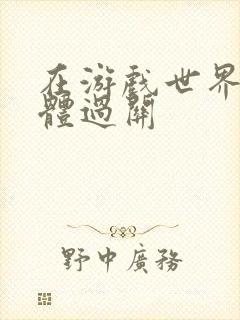 在游戏世界
體過關
野中廣務